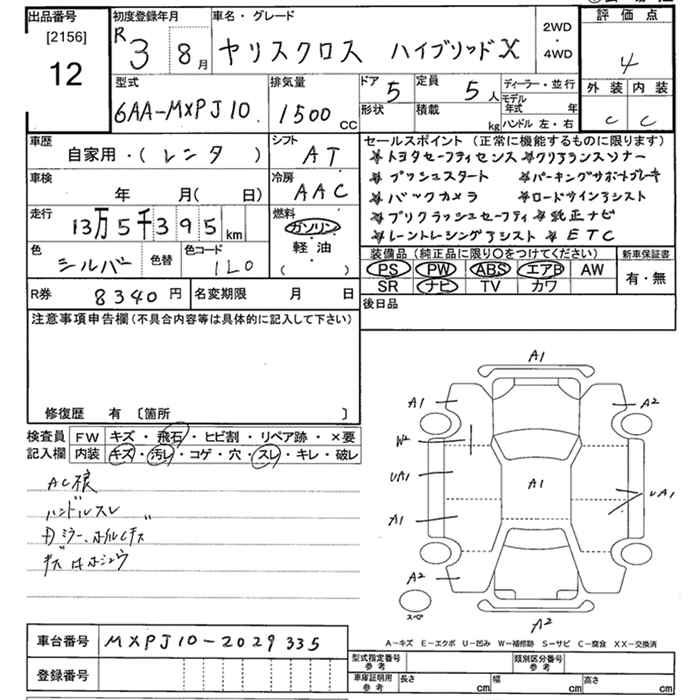 出品番号 初度登録年月 車名・グレード 評価点
[2156] R 3 8月 ヤリスクロス ハイブリッドX 2WD・4WD 4
12
外装 内装
C C
型式 排気量 ドア 5 定員 5人 ディーラー・並行
6AA-MXPJ10 1500cc 形状 積載 kg モデル年式 年
ハンドル 左・右
車歴 シフト セールスポイント (正常に機能するものに限ります)
自家用・(レンタ) AT
☆トヨタセーフティセンス ☆クリアランスソナー
車検 冷房 ☆プッシュスタート ☆パーキングサポートブレーキ
年 月(日) AAC ☆バックカメラ ☆ロードサインアシスト
走行 燃料 ☆プリクラッシュセーフティ ☆純正ナビ
13万5千395km ガソリン ☆レーントレーシングアシスト ☆ETC
軽油
( )
色 色替 色コード 装備品 (純正品に限り○をつけてください) 新車保証書
シルバー 1L0 PS PW ABS エアB AW 有・無
SR ナビ TV カワ
R券 8340円 名変期限 月 日 後日品
注意事項申告欄 (不具合内容等は具体的に記入して下さい)
修復歴 有 [箇所 ]
検査員 FW キズ・飛石・ヒビ割・リペア跡・×要
記入欄 内装 キズ・汚レ・コゲ・穴・スレ・キレ・破レ
ハンドルスレ
A1
A1 A2
W2
UA1 A1 UA1
A1
A2
スペア
A2
A−キズ E−エクボ U−凹み W−補修跡 S−サビ C−腐食 XX−交換済
車台番号 MXPJ10-2029335
登録番号
型式指定番号 参考 類別区分番号 参考
車庫証明用 参考 長さ cm 幅 cm 高さ cm